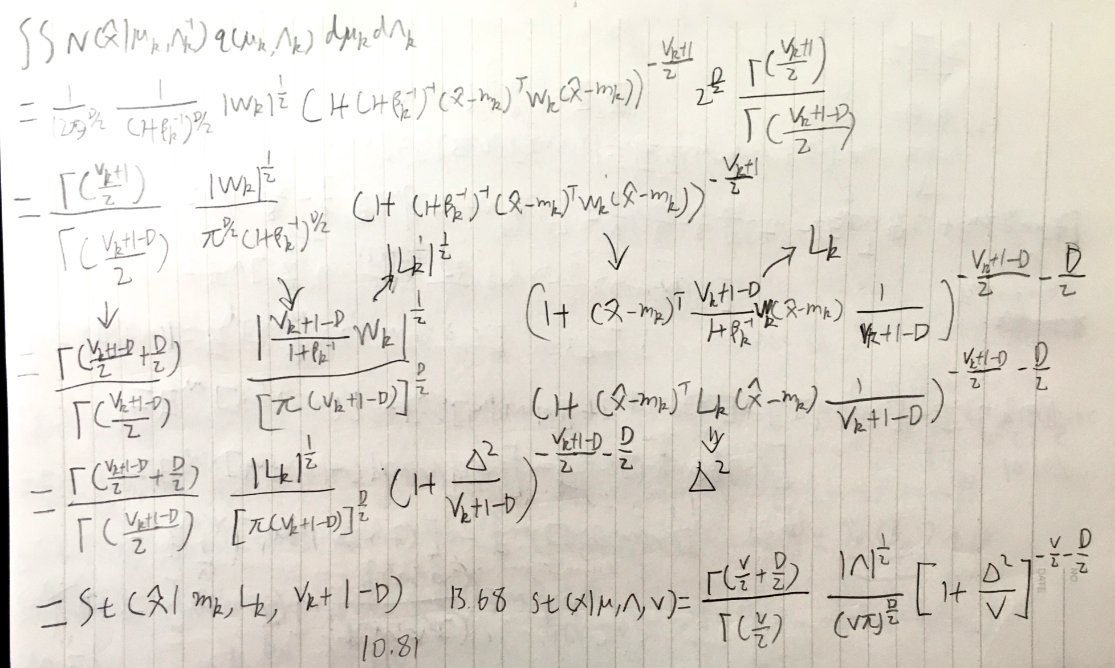 ∫∫ N(x̂|μ_k, Λ_k^{-1}) q(μ_k, Λ_k) dμ_k dΛ_k
= \frac{1}{(2π)^{D/2}} \frac{1}{(1+β_k^{-1})^{D/2}} |W_k|^{\frac{1}{2}} (1+(1+β_k^{-1})^{-1}(x̂-m_k)^T W_k(x̂-m_k))^{-\frac{V_k+1}{2}} 2^{\frac{D}{2}} \frac{Γ(\frac{V_k+1}{2})}{Γ(\frac{V_k+1-D}{2})}
= \frac{Γ(\frac{V_k+1}{2})}{Γ(\frac{V_k+1-D}{2})} \frac{|W_k|^{\frac{1}{2}}}{π^{D/2}(1+β_k^{-1})^{D/2}} (1+(1+β_k^{-1})^{-1}(x̂-m_k)^T W_k(x̂-m_k))^{-\frac{V_k+1}{2}}
↓ ↓ ↗ |L_k|^{\frac{1}{2}} ↓ ↗ L_k
= \frac{Γ(\frac{V_k+1-D}{2}+\frac{D}{2})}{Γ(\frac{V_k+1-D}{2})} \frac{|\frac{V_k+1-D}{1+β_k^{-1}} W_k|^{\frac{1}{2}}}{[π(V_k+1-D)]^{\frac{D}{2}}} (1+(x̂-m_k)^T \frac{V_k+1-D}{1+β_k^{-1}} W_k(x̂-m_k) \frac{1}{V_k+1-D})^{-\frac{V_k+1-D}{2}-\frac{D}{2}}
(1+(x̂-m_k)^T L_k(x̂-m_k) \frac{1}{V_k+1-D})^{-\frac{V_k+1-D}{2}-\frac{D}{2}}
⇓ Δ^2
= \frac{Γ(\frac{V_k+1-D}{2}+\frac{D}{2})}{Γ(\frac{V_k+1-D}{2})} \frac{|L_k|^{\frac{1}{2}}}{[π(V_k+1-D)]^{\frac{D}{2}}} (1+\frac{Δ^2}{V_k+1-D})^{-\frac{V_k+1-D}{2}-\frac{D}{2}}
= St(x̂|m_k, L_k, V_k+1-D) B.68 St(x|μ,Λ,ν)= \frac{Γ(\frac{ν}{2}+\frac{D}{2})}{Γ(\frac{ν}{2})} \frac{|Λ|^{\frac{1}{2}}}{(νπ)^{\frac{D}{2}}} [1+\frac{Δ^2}{ν}]^{-\frac{ν}{2}-\frac{D}{2}}
10.81